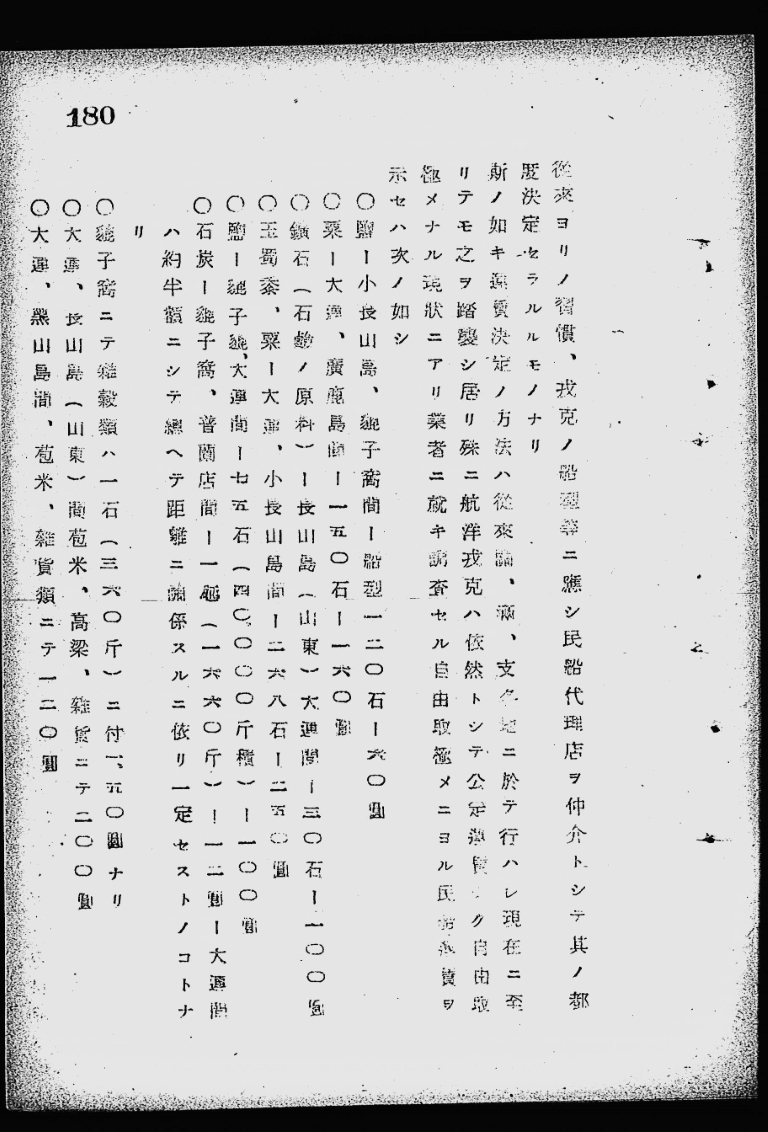 180
從來ヨリノ習慣、戎克ノ船型等ニ應シ民船代理店ヲ仲介トシテ其ノ都
度決定セラルルモノナリ
斯ノ如キ運賃決定ノ方法ハ從來 、滿、支各地ニ於テ行ハレ現在ニ至
リテモ之ヲ踏襲シ居リ殊ニ航洋戎克ハ依然トシテ公定運賃ナク自由取
極メナル現狀ニアリ業者ニ就キ調査セル自由取極メニヨル民船運賃ヲ
示セハ次ノ如シ
〇鹽ー小長山島、貔子窩間ー船型一二〇石ー六〇圓
〇粟ー大連、廣鹿島間ー一五〇石ー一六〇圓
〇鑛石(石 ノ原料)ー長山島(山東)大連間ー三〇石ー一〇〇圓
〇玉蜀黍、粟ー大連、小長山島間ー二六八石ー二五〇圓
〇鹽ー貔子窩、大連間ー七五石(四〇、〇〇〇斤積)ー一〇〇圓
〇石炭ー貔子窩、普蘭店間ー一 (一六六〇斤)ー一二圓ー大連間
ハ約半額ニシテ總ヘテ距離ニ關係スルニ依リ一定セストノコトナ
リ
〇貔子窩ニテ雜穀類ハ一石(三六〇斤)ニ付一、五〇圓ナリ
〇大連、長山島(山東)間苞米、高梁、雜貨ニテ二〇〇圓
〇大連、黑山島間、苞米、雜貨類ニテ一二〇圓